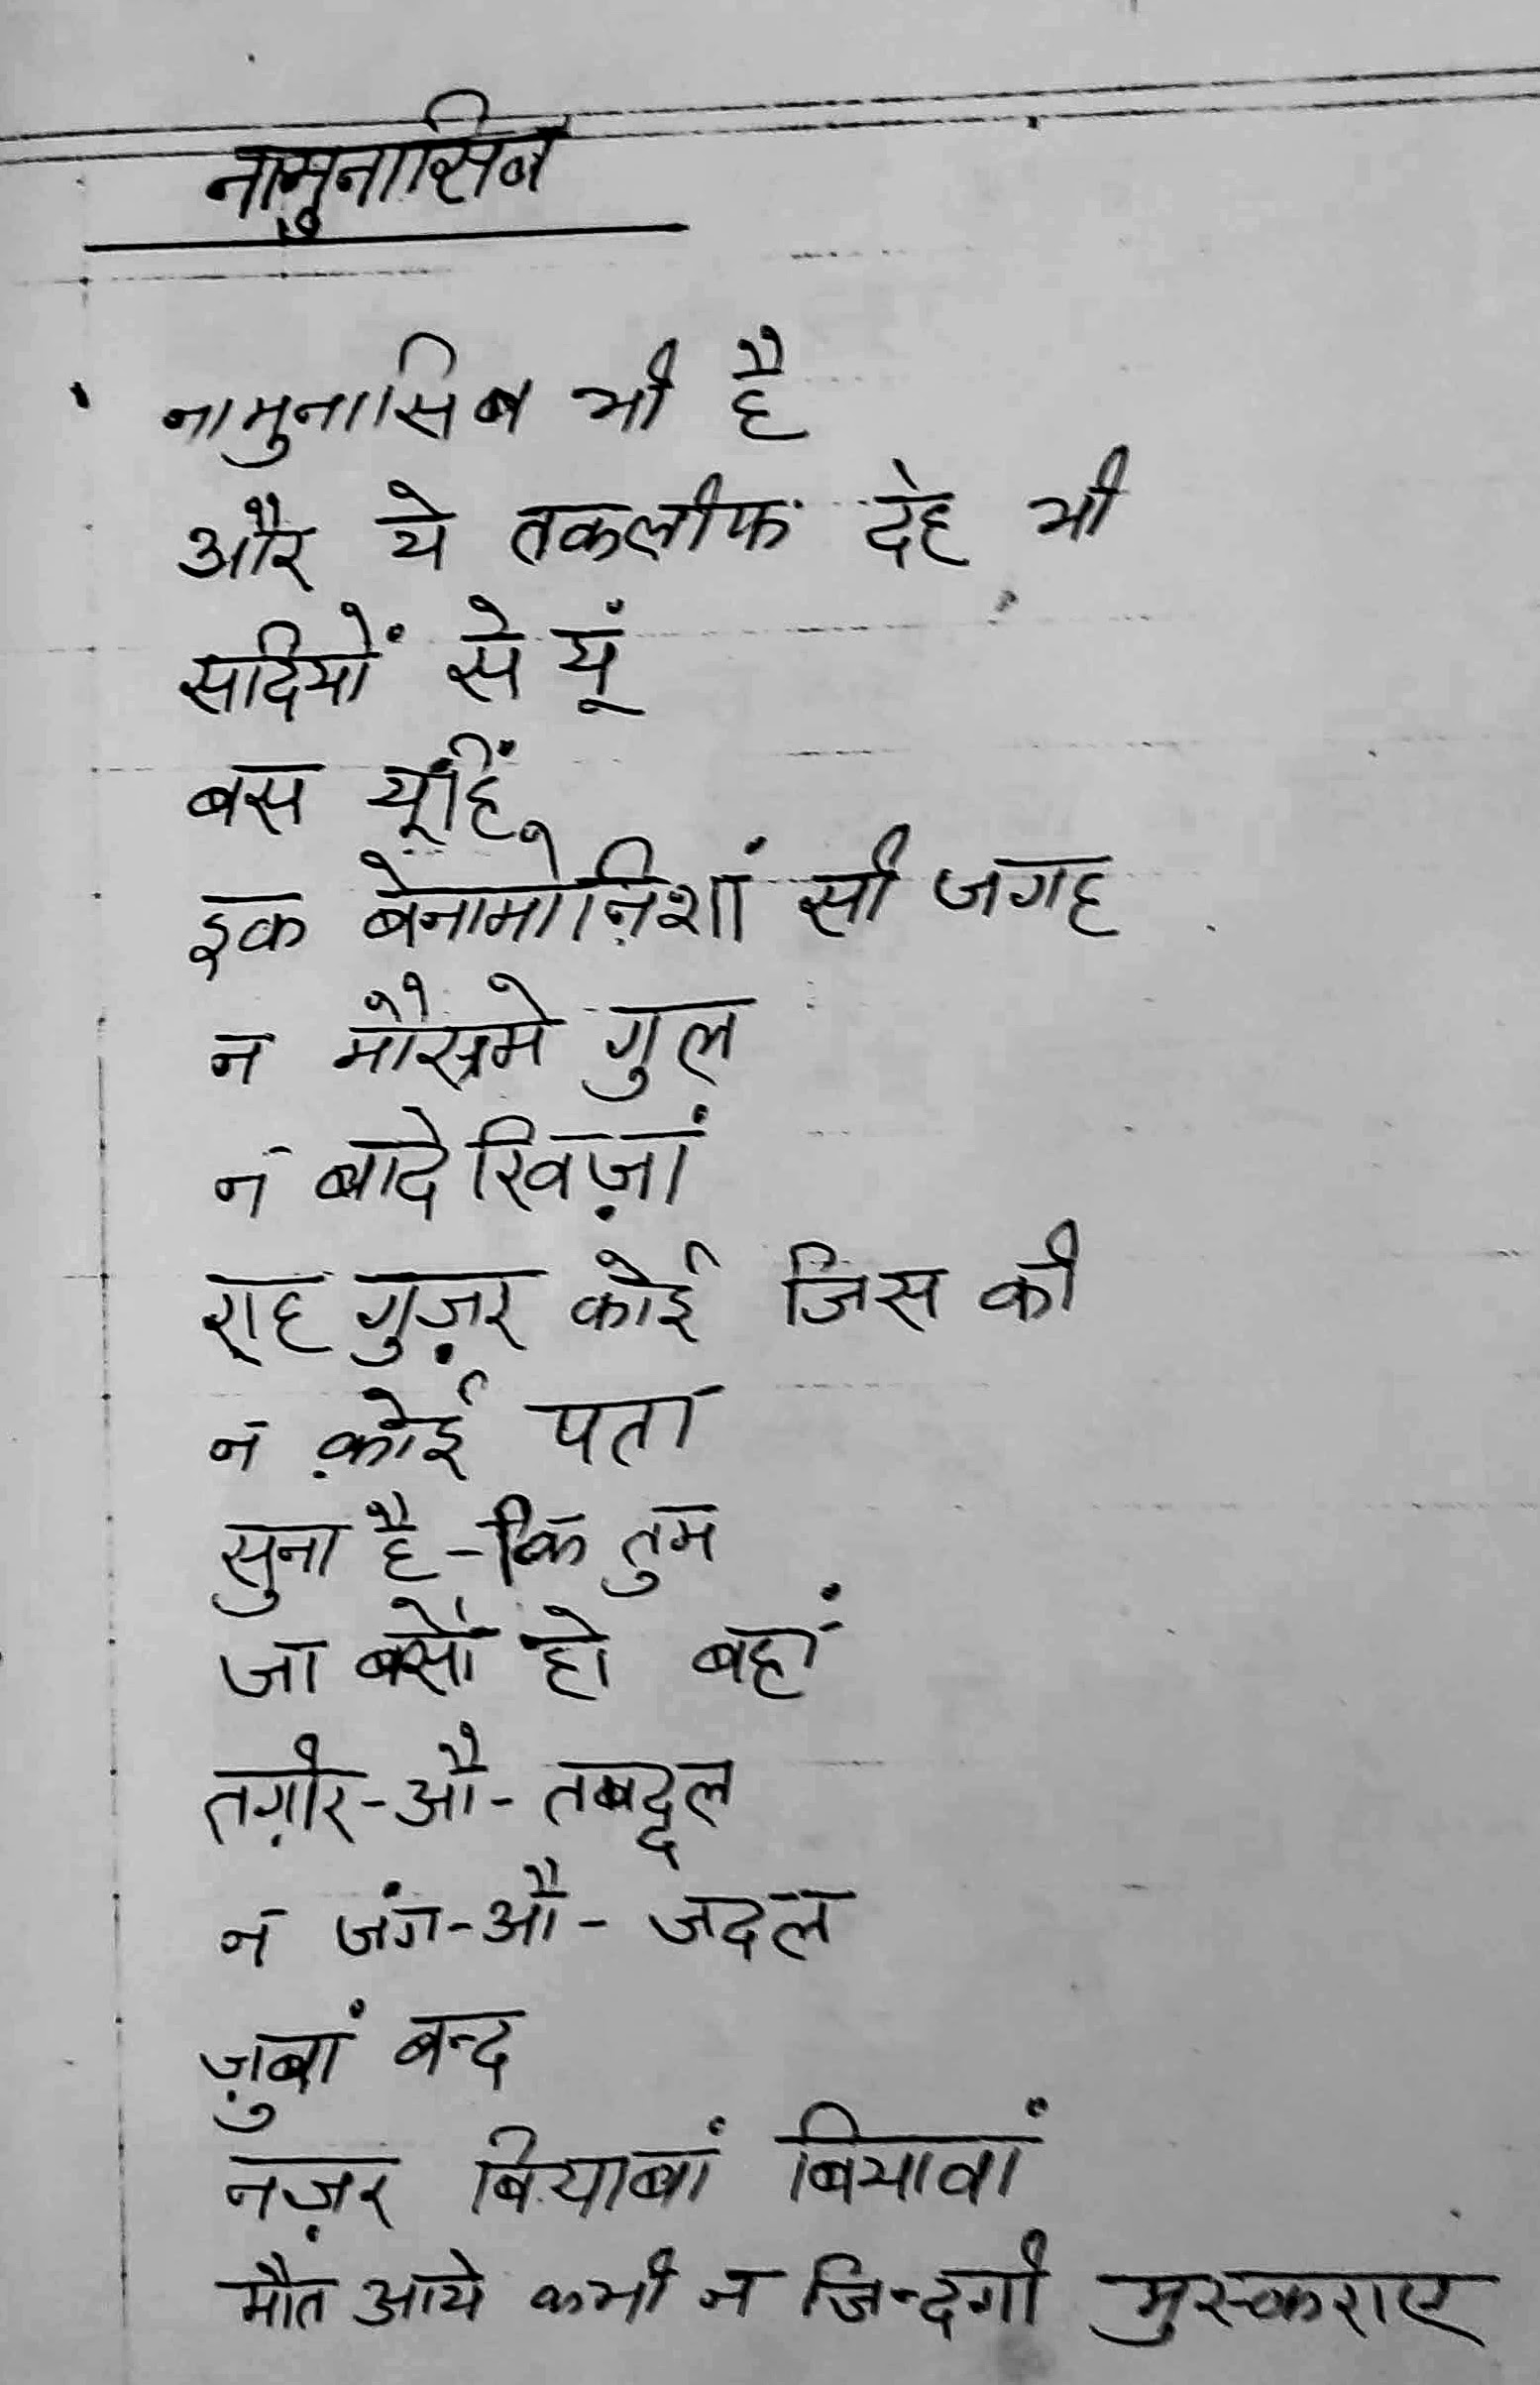 नामुनासिब
नामुनासिब भी है
और ये तकलीफ देह भी
सदियों से यूं
बस यूंहिं
इक बेनामोनिशां सी जगह
न मौसमे गुल
न बादे खिज़ां
राह गुज़र कोई जिस की
न कोई पता
सुना है - कि तुम
जा बसे हो वहां
तग़ीर-औ-तबद्दुल
न जंग-औ-जदल
ज़ुबां बन्द
नज़र बियाबां बियावां
मौत आये कभी न जिन्दगी मुस्कराए